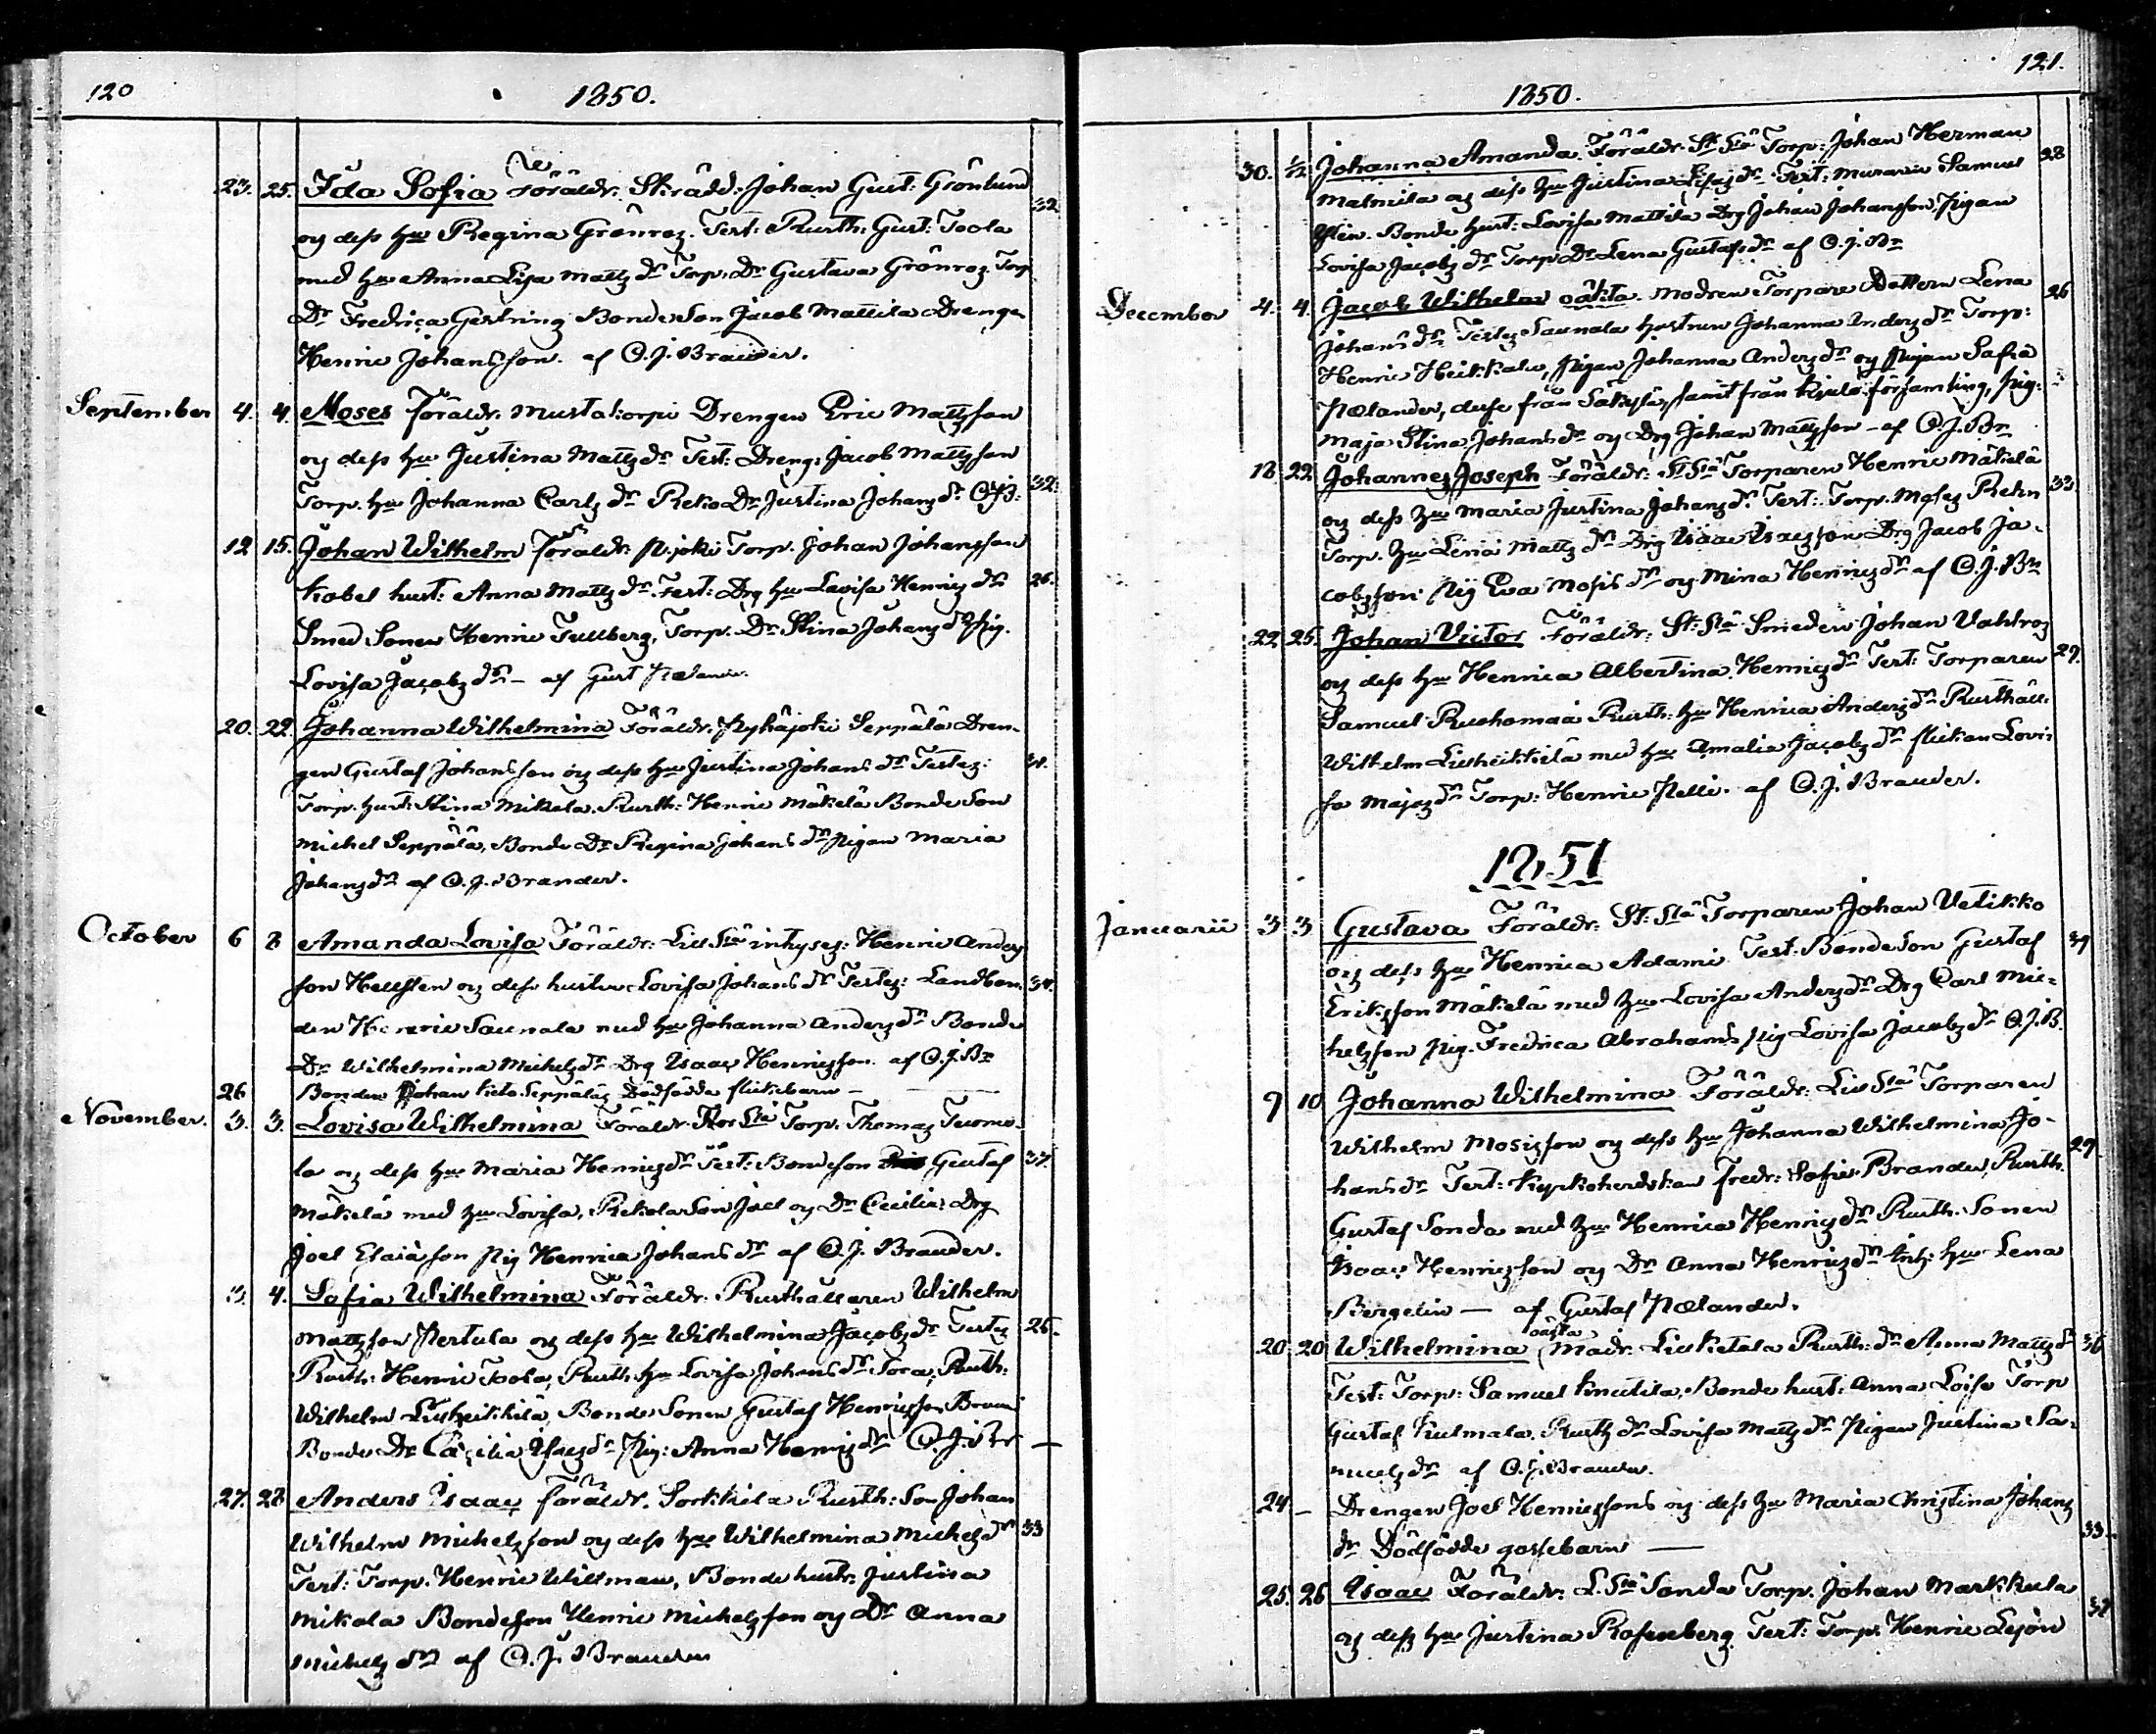 120
1850.
23. 25. Ida Sofia Föräldr. Skrädd: Johan Gust: Grönlund
32
og dess hu Regina Grönroz. Test: Rusth: Gust: Toola
med hu Anna Lisa Mattz dr Torp. Dr Gustava Grönroz Torp
Dr Fredrica Gestring Bonde Son Jacob Mattila Drengen
Henric Johansson. af C. J. Brander.
September 4. 4. Moses Föräldr. Mustakorpi Drengen Eric Mattzson
og dess hu Justina Mattz dr Test: Dreng: Jacob Mattzson
Torp. hu Johanna Carlz dr Reko Dr Justina Johanz dr CJB: 32.
12 15. Johan Wilhelm Föräldr. P.joki Torp. Johan Johansson
Kobel hust: Anna Mattz dr. Test: Drg hu Lovisa Henriz dr 26.
Smed Sonen Henric Tullberg, Torp. Dr Stina Johanz dr Pig.
Lovisa Jacobz dr – af Gust Pælander.
20. 22. Johanna Wilhelmina Föräldr. Pyhäjoki Seppälä Dren-
gen Gustaf Johansson og dess hu Justina Johans dr Testez: 31.
Torp. hust. Stina Mikola. Rusth: Henric Mäkelä Bonde Son
Michel Seppälä, Bonde Dr Regina Johans dr Pigan Maria
Johanz dr af C. J. Brander.
October 6 8 Amanda Lovisa Föräldr: Lill Stä inhysez: Henric Anderz
son Hellsten og dess hustru Lovisa Johans dr Testez: Landbon- 34.
den Henric Saunala med hu Johanna Anderz dr Bonde
Dr Wilhelmina Michelz dr Drg Isaac Henrizson af C. J. Br
26 Bonden Johan Kieto Seppäläz Dödfödda flickebarn —
November. 3. 3. Lovisa Wilhelmina Föräldr. Stor Stä Torp. Thomaz Tuomo-
la og dess hu Maria Henriz dr Test: Bondeson Gustaf 37.
Mäkelä med hu Lovisa, Rekola Son Joel og Dr Cecilia, Drg
Joel Elaiäson Pig Henrica Johans dr af C. J. Brander.
3. 4. Sofia Wilhelmina Föräldr. Rusthållaren Wilhelm
Mattzson Pertula og dess hu Wilhelmina Jacobz dr Testez 25.
Rusth: Henric Toola, Rusth. hu Lovisa Johans dr Sora, Rusth:
Wilhelm Liuheikkilä, Bonde Sonen Gustaf Henrizson
Bonde Dr Cæcilia Isacz dr Pig: Anna Henriz dr C. J. Br —
27. 28 Anders Isaac Föräldr. Sorkkila Rusth: Son Johan
Wilhelm Michelzson og dess hu Wilhelmina Michelz dr 33
Test: Torp. Henric Willman, Bonde hustr. Justina
Mikola Bondeson Henric Michelzson og Dr Anna
Michelz dr af C. J. Brander
121.
1850.
30. 1/12 Johanna Amanda. Föräldr. St. Stä Torp: Johan Herman 28
Malmila og dess hu Justina dr. Test: Muraren Samuel
Bonde hust: Lovisa Mattila Drg Johan Johansson, Pigan
Lovisa Jacobz dr Torp Dr Lena Gustafs dr af C. J. Br
December 4. 4. Jacob Wilhelm oäkta. Modren Torpare Dottern Lena 26
Johans dr. Testez Saunala hustrun Johanna Anderz dr Torp:
Henric Heikkala, Pigan Johanna Anderz dr og Pigan Safia
Pælander, desse från Säkylä, samt från Kjulo församling, Pig.
Maja Stina Johans dr og Drg Johan Mattzson – af C. J. Br
18 22 Johannes Joseph Föräldr: St. Stä Torparen Henric Mäkelä
og dess hu Maria Justina Johanz dr. Test: Torp. Mosez Rehn 33.
Torp. hu Lena Mattz dr Drg Isaac Isaczson Drg Jacob Ja-
cobzson Pig Eva Mosis dr og Mina Henriz dr af C. J. Br
22 25. Johan Victor Föräldr: St: Stä Smeden Johan Vahlroz
og dess hu Henrica Albertina Henriz dr Test: Torparen 29.
Samuel Ruohomaa Rusth: hu Henrica Anderz dr Rusthåll:
Wilhelm Liuheikkilä med hu Amalia Jacobz dr flickan Lovi-
sa Majaz dr Torp: Henric Pelli. af C. J. Brander.
1851
Januarii 3 3 Gustava Föräldr: St. Stä Torparen Johan Uetikko
og dess hu Henrica Adami Test. Bonde Son Gustaf 39
Erikzson Mäkelä med hu Lovisa Anderz dr Drg Carl Mic-
helzson Pig. Fredrica Abrahams Pig Lovisa Jacobz dr C. J. B.
9 10 Johanna Wilhelmina Föräldr: Lill Stä Torparen
Wilhelm Mosizson og dess hu Johanna Wilhelmina Jo- 29
hans dr Test: Kyrkoherdskan Fredr: Sofie Brander, Rusth.
Gustaf Sonda med hu Henrica Henriz dr Rusth. Sonen
Isaac Henrizson og Dr Anna Henriz dr Inh: hu Lena
Bergelin — af Gustaf Pælander.
20 20 Wilhelmina oäkta Modr. Liukietala Rusth: dr Anna Mattz dr 36
Test: Torp: Samuel Knutila, Bonde hust: Anna Loisa Torp
Gustaf Kulmala. Rusth dr Lovisa Mattz dr Pigan Justina Sa-
muelz dr af C. J. Brander.
24 – Drengen Joel Henrizsons og dess hu Maria Christina Johanz
dr Dödfödde gossebarn — 33.
25. 26 Isaac Föräldr. L. Stä Sonda Torp. Johan Markkula
og dess hu Justina Rosenberg Test: Torp. Henric Lejon 32